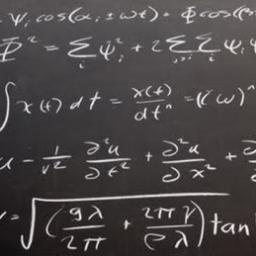 Ψᵢ cos(αᵢ ± ωt) = Φ cos(
Φ² = Σᵢ Ψᵢ² + 2 Σ Σᵢ Ψᵢ Ψ
∫ x(t) dt = x(t)/dtⁿ = (iω)ⁿ
u - 1/v² ∂²u/∂t² + ∂²u/∂x² + ∂
= √(gλ/2π + 2πγ/ρλ) tan